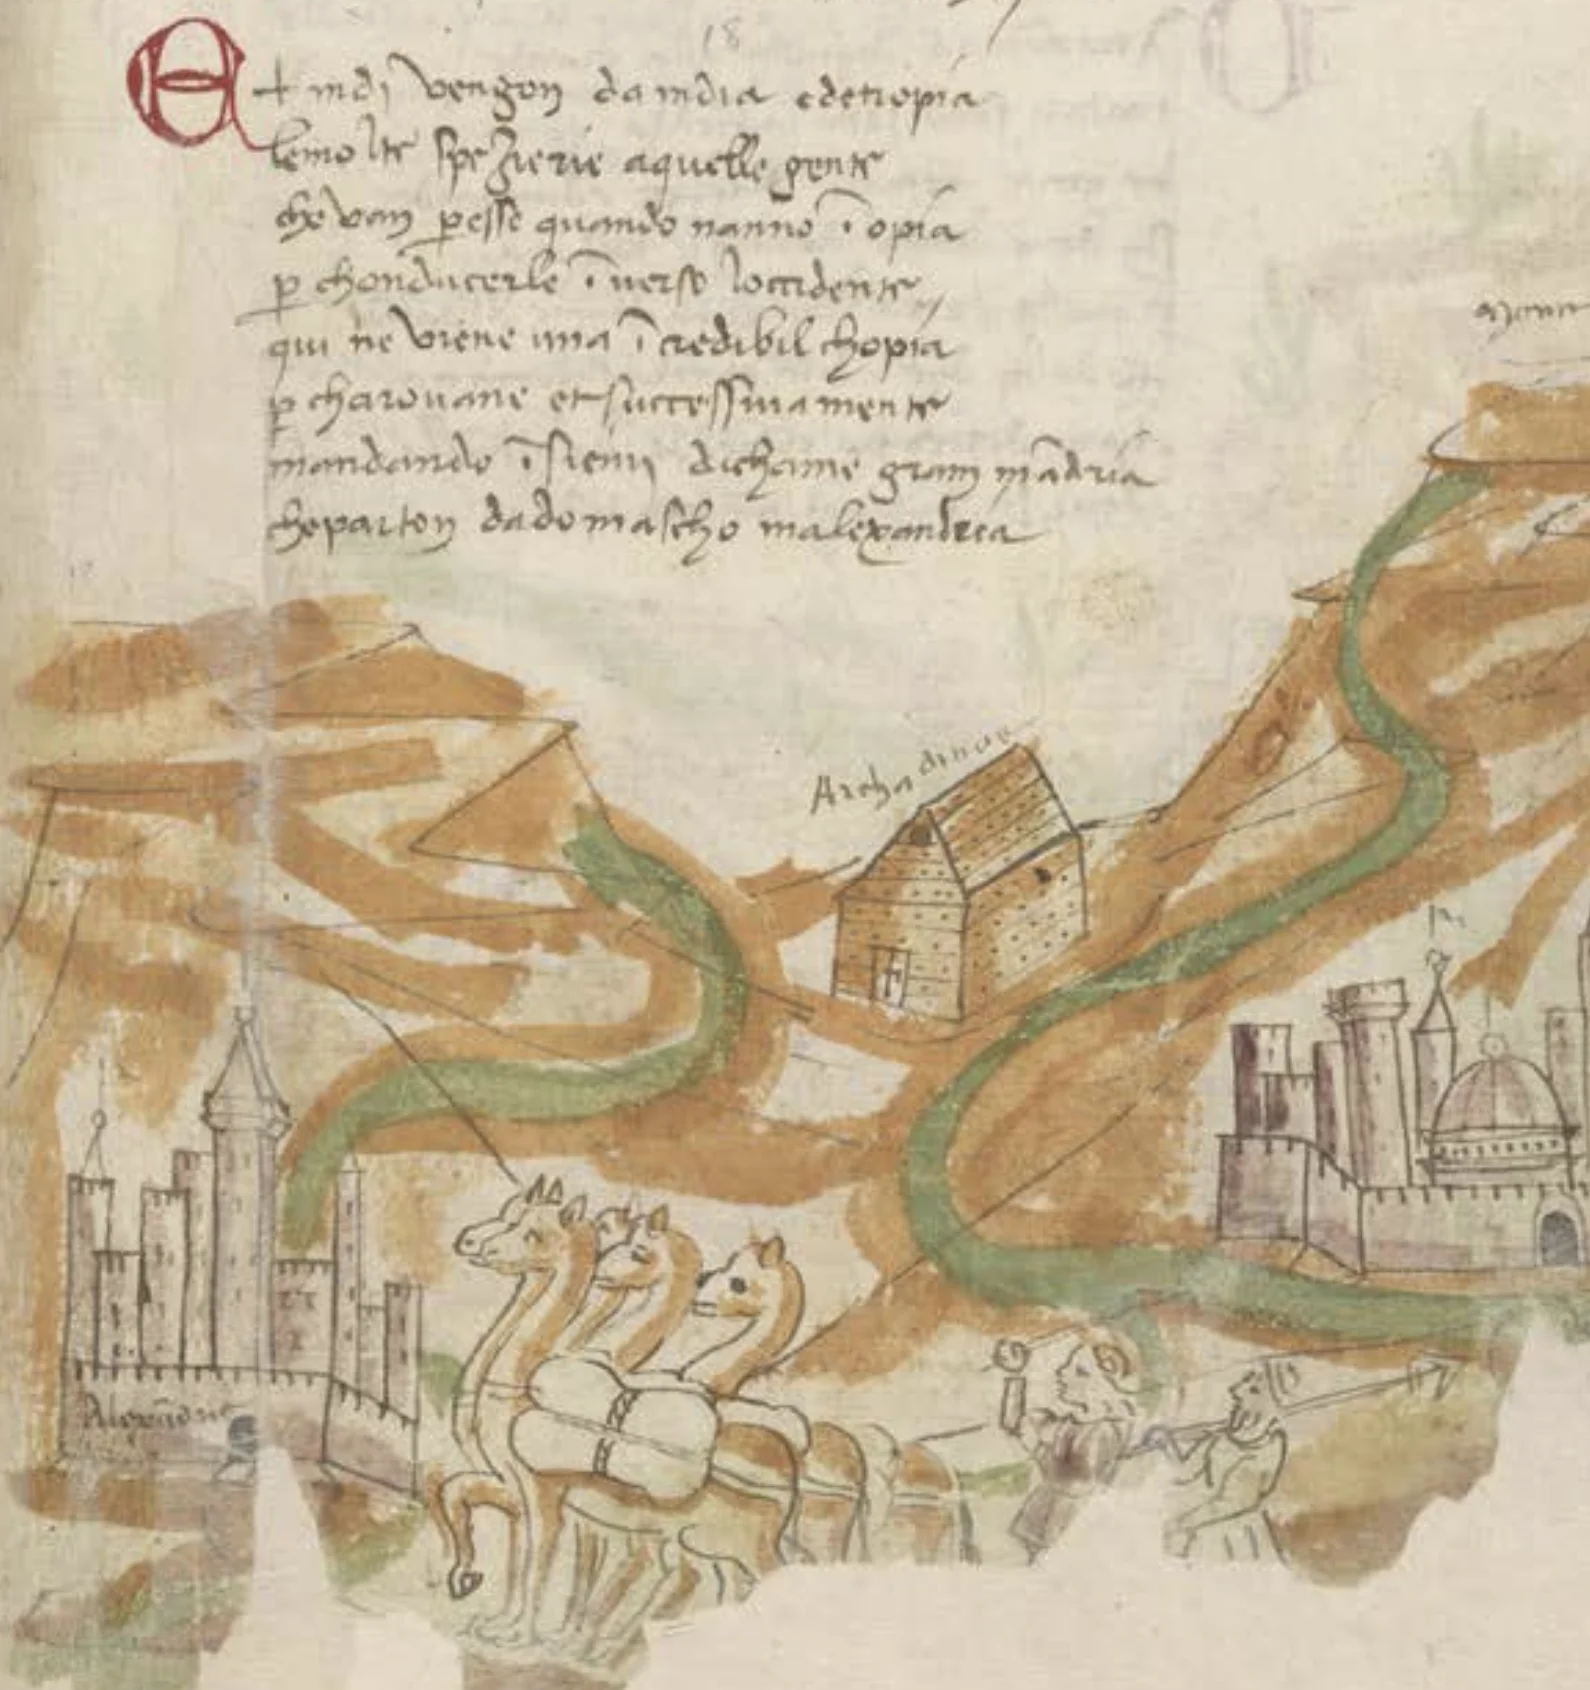 18
Et indi vengon da india edetiopia
lemolte spezierie aquelle gente
che van p esse quando nanno ī opia
p chonducerle ī verso loccidente
qui ne viene una ī credibil chopia
p charovane et successivamente
mandando ī siemi dichame gran mādria
cheparton dadomascho inalexandria
Archa di noe
Alexādria